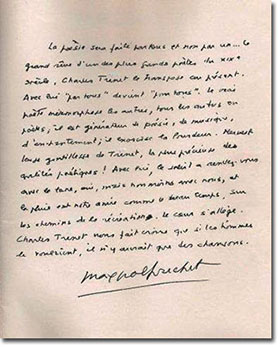 La poésie sera faite par tous et non par un... le
grand rêve d'un des plus grands poètes du XIXe
siècle, Charles Trenet le transpose au présent.
Avec lui "par tous" devient "pour tous". Le vrai
poète métamorphose les autres, tous les autres en
poètes, il est générateur de poésie, de musique,
d'emportement, il exorcise la
gentillesse de Trenet, la plus précieuse des
qualités poétiques ! Avec lui, le soleil a rendez-vous
avec la lune, oui, mais nous avec nous, et
la pluie est notre amie comme le beau temps, sur
les chemins de la récréation. Le cœur s'allège.
Charles Trenet nous fait croire que si les hommes
le voulaient, il n'y aurait que des chansons.